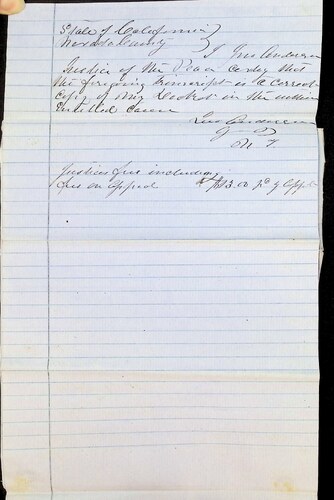 State of California }
Nevada County }
I Jno Anderson
Justice of the Peace certify that
the foregoing transcript is a correct
copy of my Docket in the within
Entitled cause
Jno Anderson
J P
Justices fees including
fees on appeal $13.00 pd by Applt